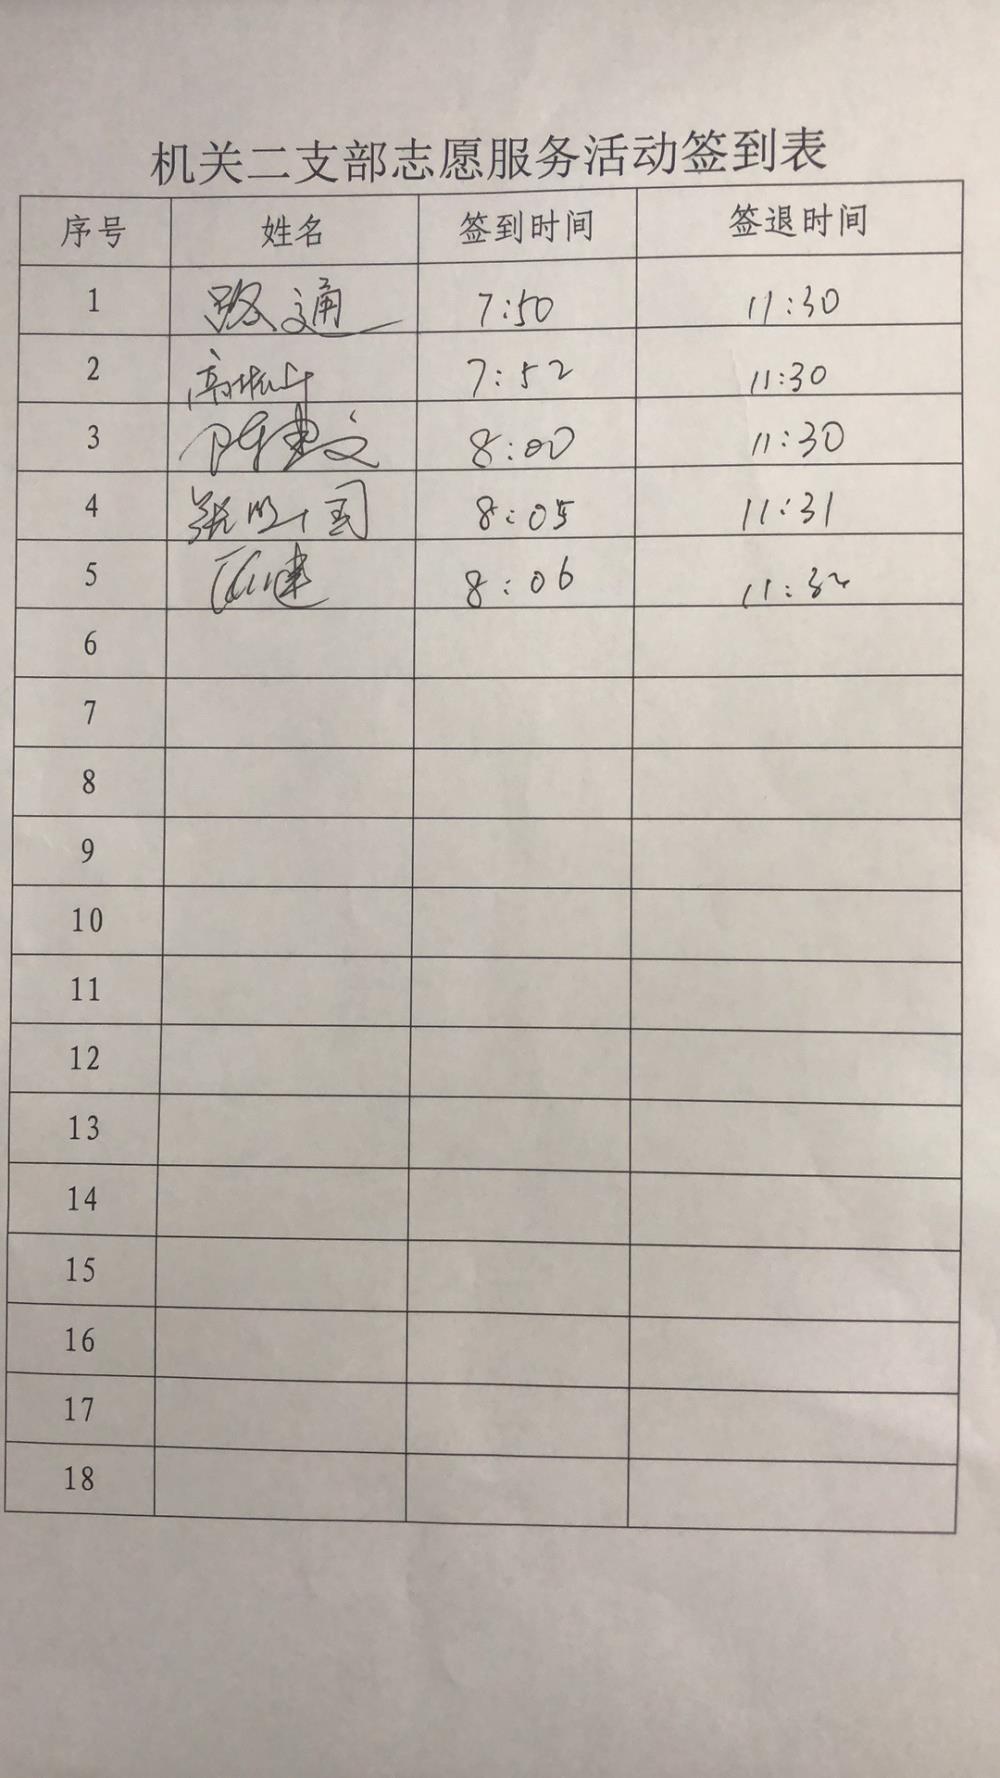 机关二支部志愿服务活动签到表
序号 姓名 签到时间 签退时间
1 路通 7:50 11:30
2 7:52 11:30
3 陈建文 8:00 11:30
4 张 国 8:05 11:31
5 建 8:06 11:32
6
7
8
9
10
11
12
13
14
15
16
17
18